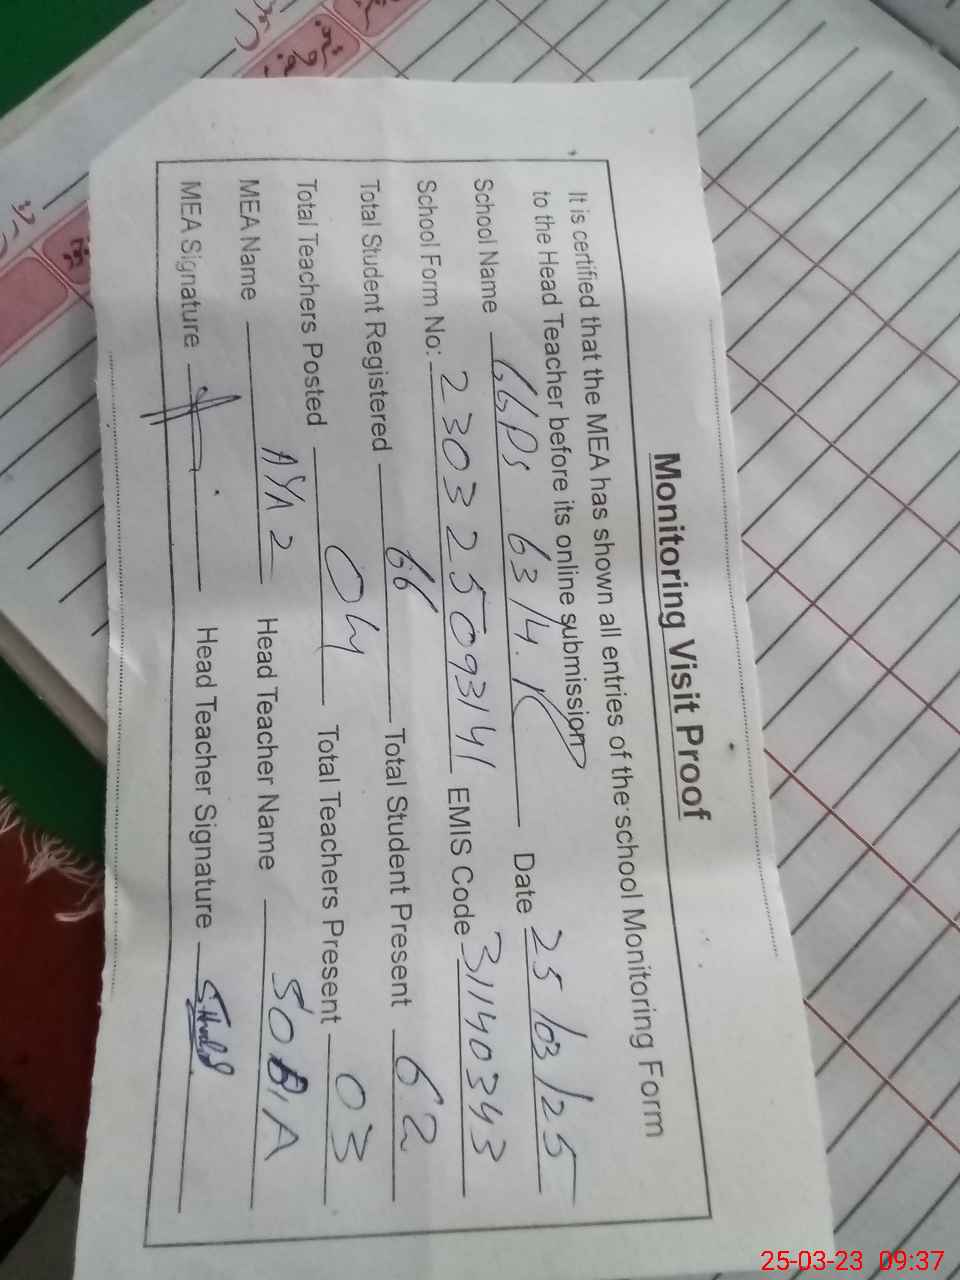 Monitoring Visit Proof
It is certified that the MEA has shown all entries of the school Monitoring Form
to the Head Teacher before its online submission
School Name GGPS 63/4.R Date 25/03/25
School Form No: 2303 25093141 EMIS Code 31140343
Total Student Registered 66 Total Student Present 62
Total Teachers Posted 04 Total Teachers Present 03
MEA Name Head Teacher Name SOBIA
MEA Signature Head Teacher Signature
25-03-23 09:37